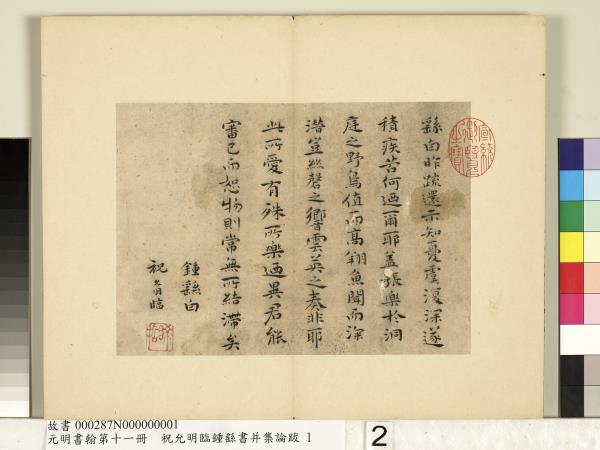 繇白昨疏還示知憂虞復深遂
積疾苦何迺爾耶蓋張樂於洞
庭之野鳥值而高翔魚聞而深
潛豈絲磬之響雲英之奏非耶
此所愛有殊所樂迺異君能
審己而恕物則常無所結滯矣
鍾繇白
祝允明臨
宣統御覽之寶
故書 000287N000000001
元明書翰第十一冊 祝允明臨鍾繇書并集論跋 1
2